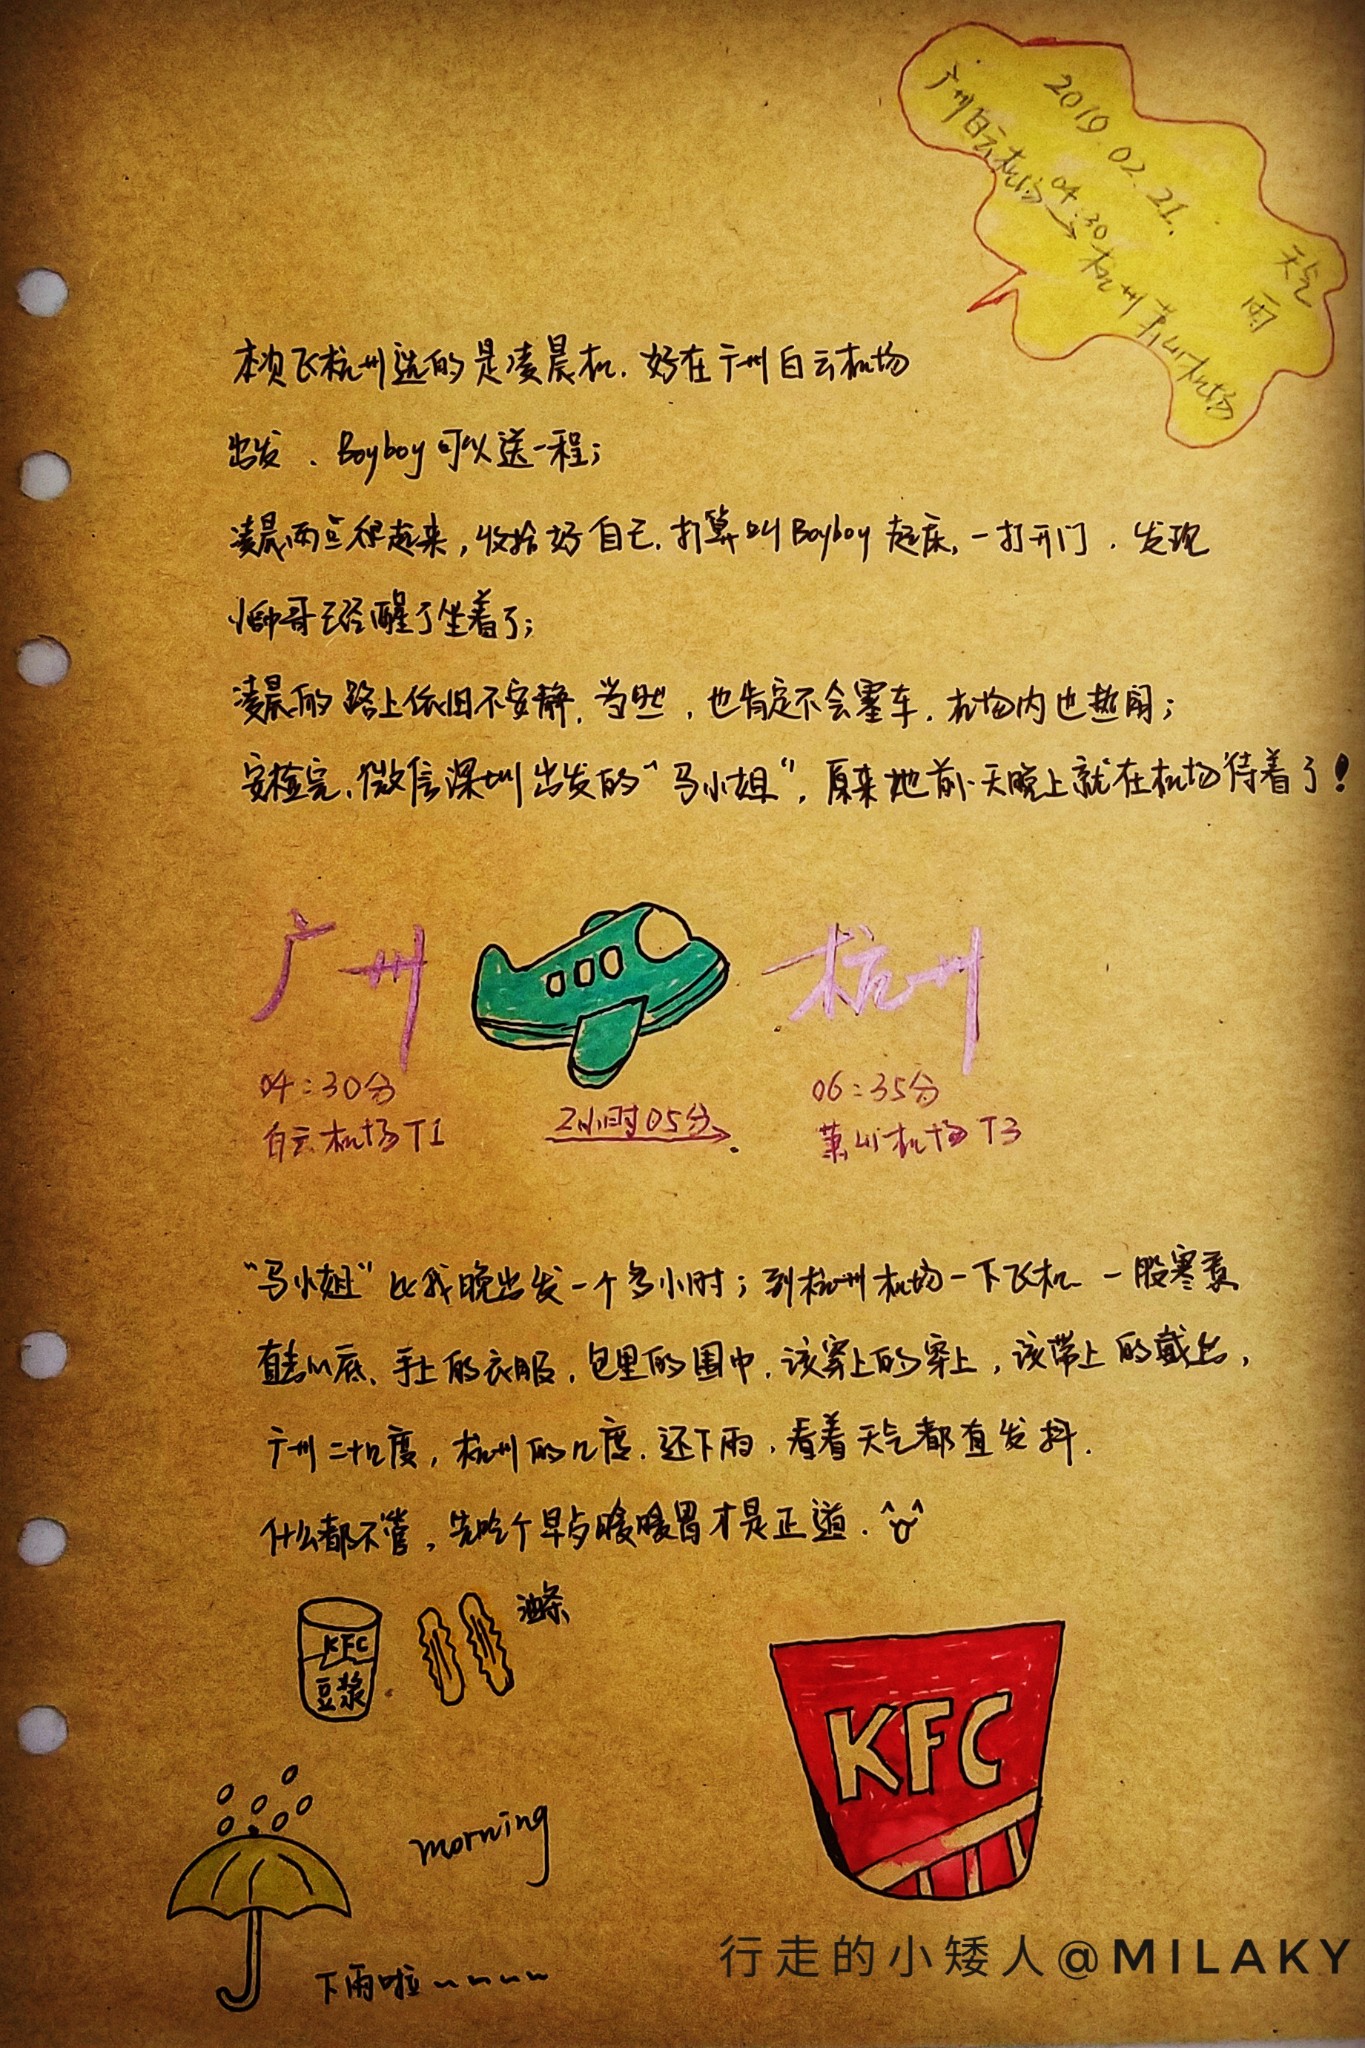 2019.02.21. 天气
雨
04:30
广州白云机场→杭州萧山机场
本次飞杭州选的是凌晨机，好在广州白云机场
出发、Boyboy可以送一程；
凌晨两点很起来，收拾好自己，打算叫Boyboy起床，一打开门，发现
帅哥已经醒了坐着了；
凌晨的路上依旧不安静，当然，也肯定不会塞车，机场内也热闹；
安检完、微信深圳出发的“马小姐”，原来她前一天晚上就在机场待着了！
广州 杭州
04:30分 06:35分
白云机场T1 2小时05分 萧山机场T3
“马小姐”比我晚出发一个多小时；到杭州机场一下飞机 一股寒意
直击心底、手上的衣服，包里的围巾，该穿上的穿上，该带上的戴上，
广州二十几度，杭州的几度，还下雨，看着天气都直发抖.
什么都不管，先吃个早点暖暖胃才是正道.
油条
KFC
豆浆
KFC
morning
下雨啦~~~~
行走的小矮人@MILAKY